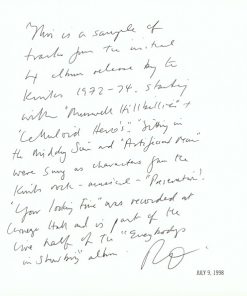 This is a sample of
tracks from the initial
4 album release by the
Kinks 1972-74. Starting
with "Muswell Hillbillies" +
"Celluloid Heroes". "Sitting in
the Midday Sun" and "Artificial Man"
were sung as characters from the
Kinks rock-musical - "Preservation".
"You're looking Fine" was recorded at
Carnegie Hall and is part of the
live half of the "Everybody's
in Showbiz" album.
JULY 9, 1998